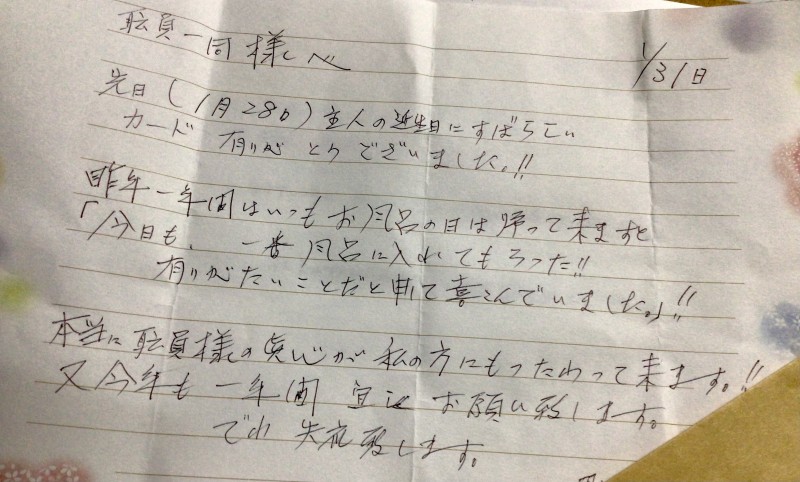 職員一同様へ
1/31日
先日(1月28日)主人の誕生日にすばらしい
カード 有りがとうございました。!!
昨年一年間はいつもお風呂の日は帰って来ますと
「今日も、一番風呂に入れてもらった!!
有りがたいことだと申して喜こんでいました。」!!
本当に職員様の真心が私の方にもつたわって来ます。!!
又今年も一年間宜しくお願い致します。
では失礼致します。